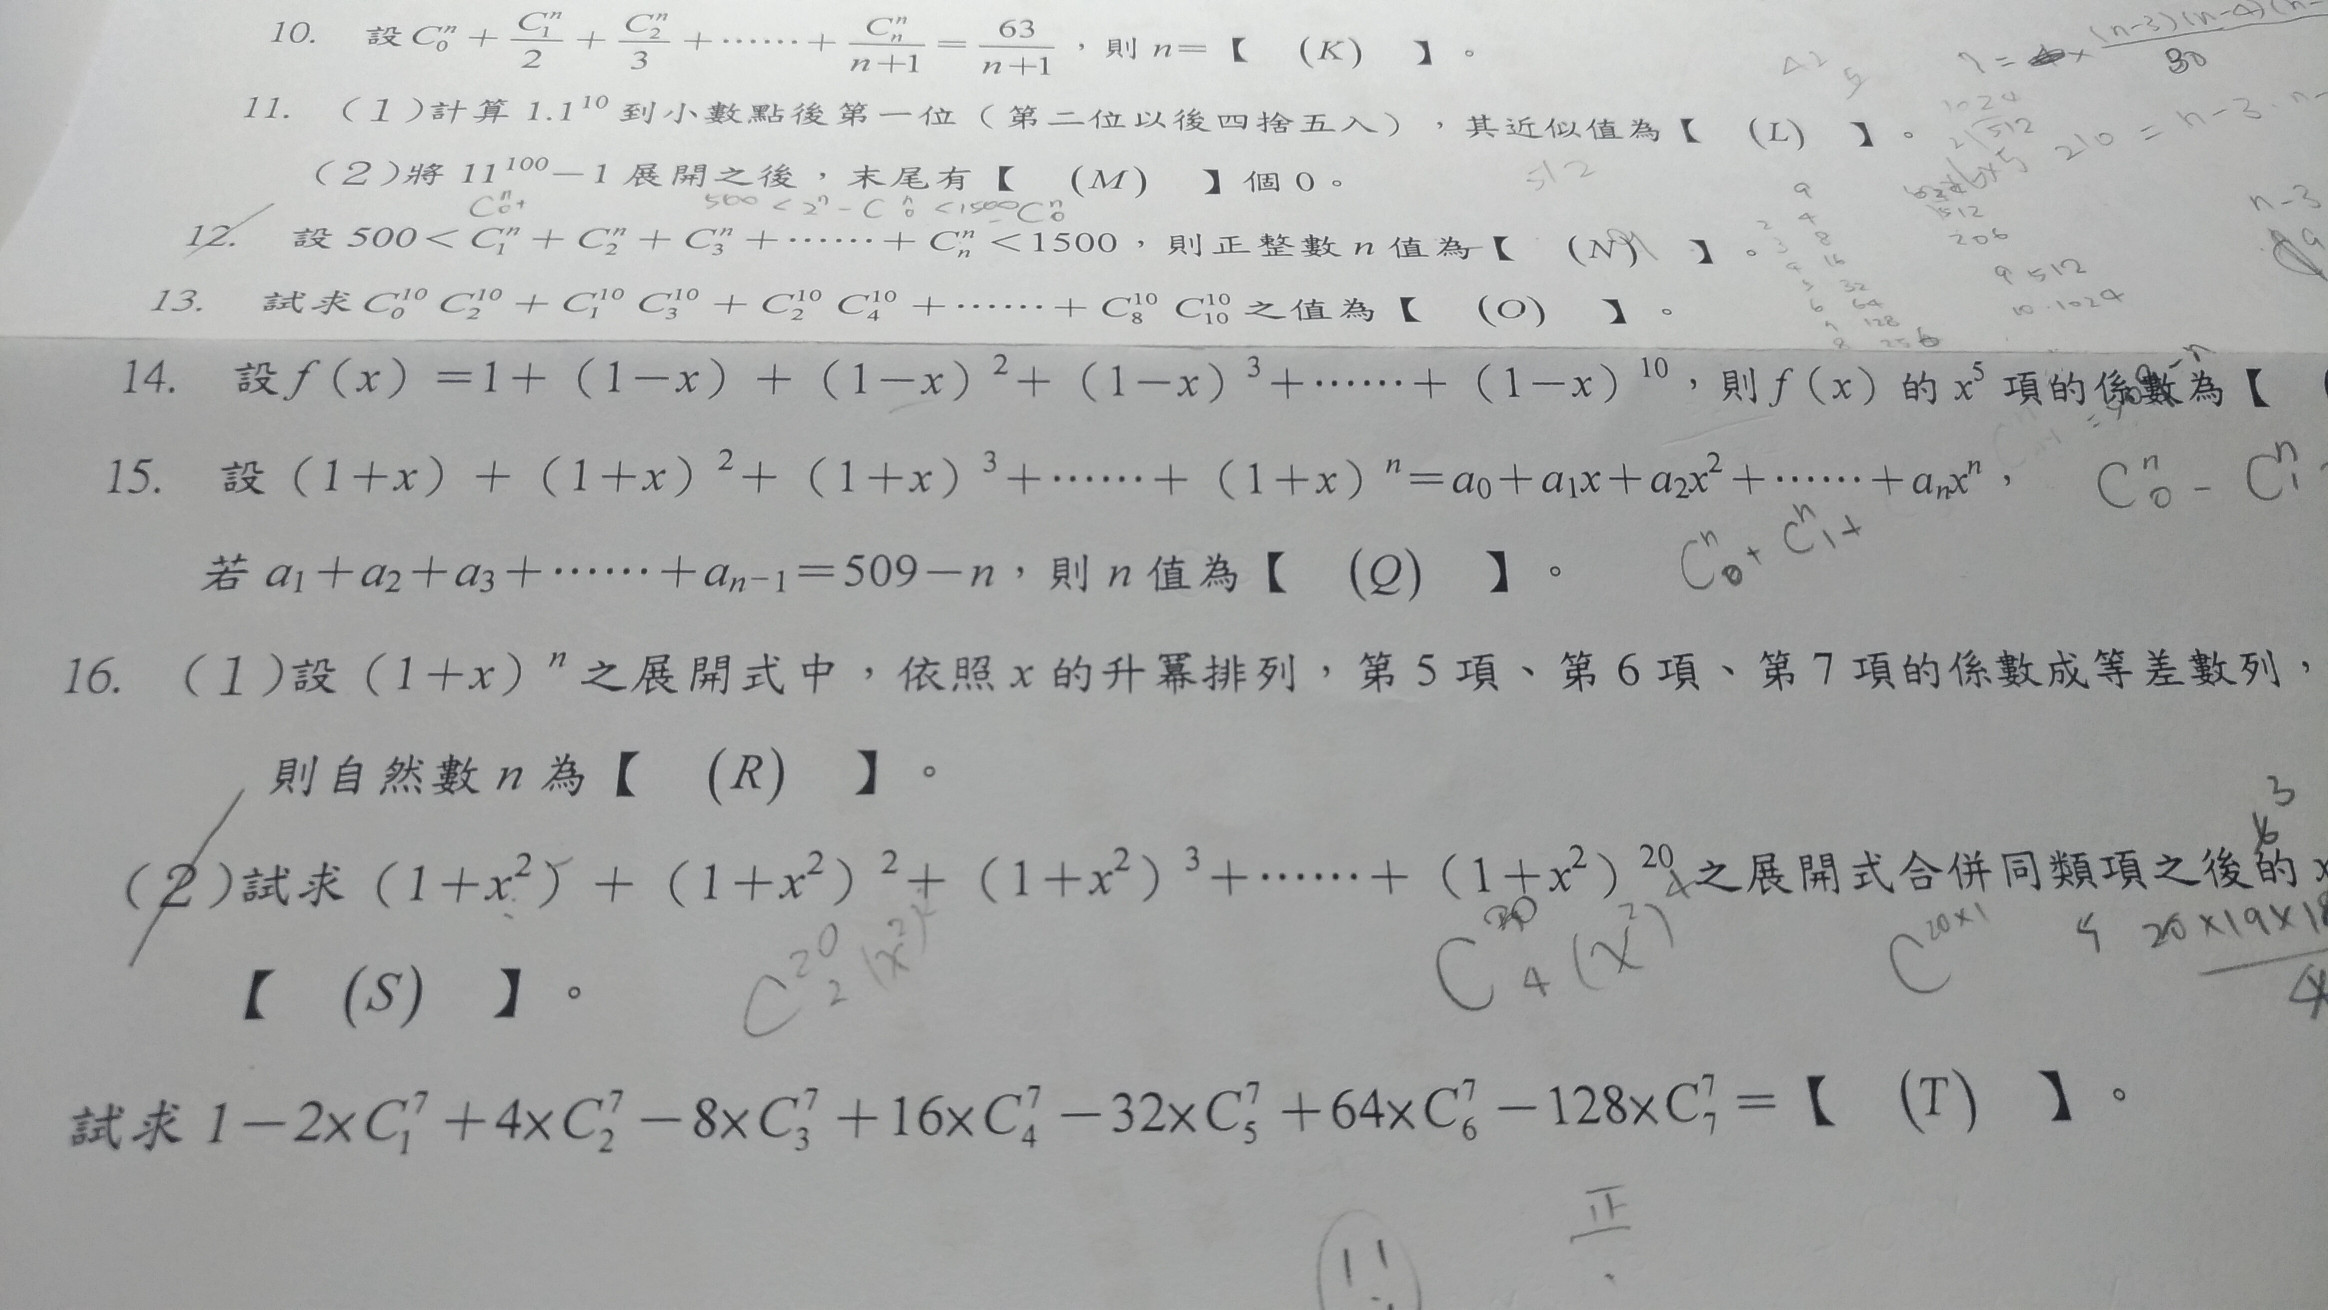 10. 設 C₀ⁿ + C₁ⁿ/2 + C₂ⁿ/3 + ⋯⋯ + Cₙⁿ/(n+1) = 63/(n+1)，則 n=【 (K) 】。
11. (1)計算 1.1¹⁰ 到小數點後第一位（第二位以後四捨五入），其近似值為【 (L) 】。
(2)將 11¹⁰⁰−1 展開之後，末尾有【 (M) 】個 0。
12. 設 500< C₁ⁿ + C₂ⁿ + C₃ⁿ +⋯⋯+ Cₙⁿ <1500，則正整數 n 值為【 (N) 】。
13. 試求 C₀¹⁰ C₂¹⁰ + C₁¹⁰ C₃¹⁰ + C₂¹⁰ C₄¹⁰ +⋯⋯+ C₈¹⁰ C₁₀¹⁰ 之值為【 (O) 】。
14. 設 f（x）=1+（1−x）+（1−x）²+（1−x）³+⋯⋯+（1−x）¹⁰，則 f（x）的 x⁵ 項的係數為【
15. 設（1+x）+（1+x）²+（1+x）³+⋯⋯+（1+x）ⁿ=a₀+a₁x+a₂x²+⋯⋯+aₙxⁿ，
C₀ⁿ − C₁ⁿ
C₀ⁿ + C₁ⁿ +
若 a₁+a₂+a₃+⋯⋯+aₙ₋₁=509−n，則 n 值為【 (Q) 】。
16. (1)設（1+x）ⁿ 之展開式中，依照 x 的升冪排列，第 5 項、第 6 項、第 7 項的係數成等差數列，
則自然數 n 為【 (R) 】。
(2)試求（1+x²）+（1+x²）²+（1+x²）³+⋯⋯+（1+x²）²⁰ 之展開式合併同類項之後的 x
【 (S) 】。
試求 1−2×C₁⁷+4×C₂⁷−8×C₃⁷+16×C₄⁷−32×C₅⁷+64×C₆⁷−128×C₇⁷=【 (T) 】。
正